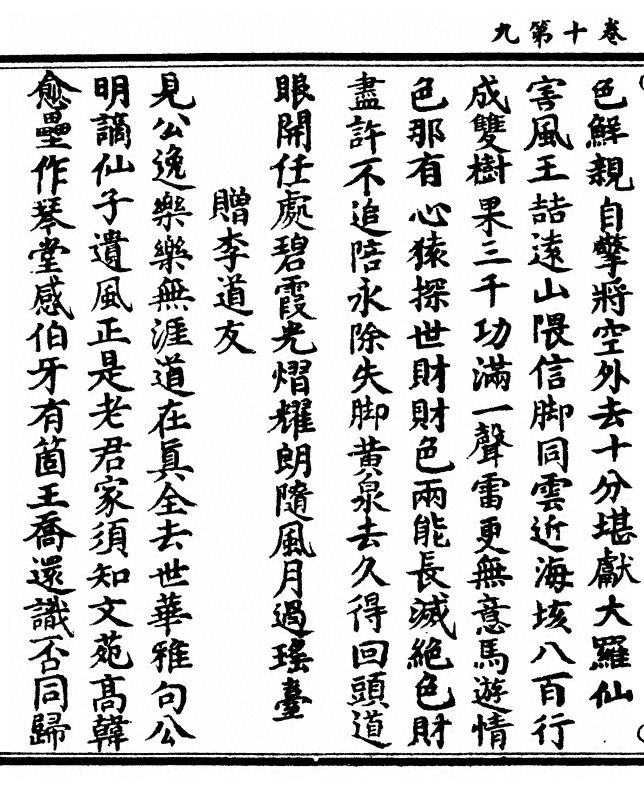 卷十第九
色鮮親自擎將空外去十分堪獻大羅仙
害風王喆遠山隈信脚同雲近海垓八百行
成雙樹果三千功滿一聲雷更無意馬遊情
色那有心猿探世財財色兩能長滅絕色財
盡許不追陪永除失脚黃泉去久得回頭道
眼開任處碧霞光熠耀朗隨風月過瑤臺
贈李道友
見公逸樂樂無涯道在真全去世華雅句公
明謫仙子遺風正是老君家須知文苑高韓
愈壘作琴堂感伯牙有箇王喬還識否同歸